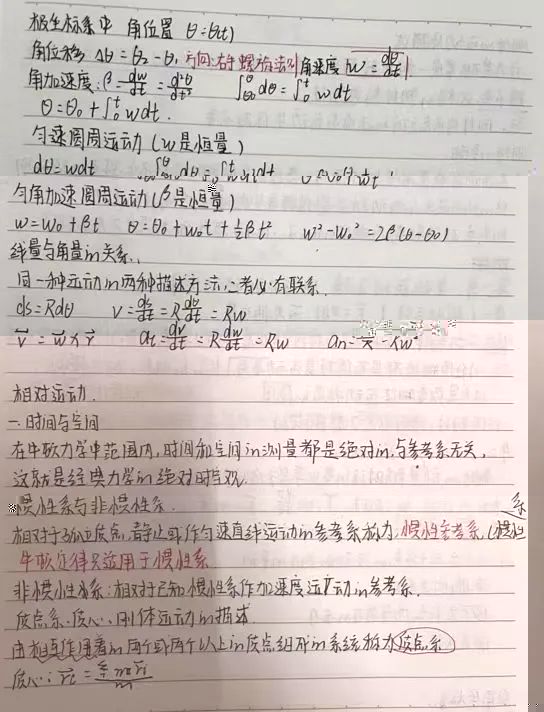 极坐标系中 角位置 θ=θ(t)
角位移 Δθ=θ₂-θ₁ 方向:右手螺旋法则 角速度 w=dθ/dt
角加速度:β=dw/dt=d²θ/dt² ∫θ₀^θ dθ=∫₀^t wdt
θ=θ₀+∫₀^t wdt.
匀速圆周运动(w是恒量)
dθ=wdt
匀角加速圆周运动(β是恒量)
w=w₀+βt θ=θ₀+w₀t+½βt² w²-w₀²=2β(θ-θ₀)
线量与角量in关系.
同一种运动in两种描述方法,二者必有联系.
ds=Rdθ v=ds/dt=Rdθ/dt=Rw
v⃗=w⃗×r⃗ at=dv/dt=Rdw/dt=Rw an=
相对运动.
一.时间与空间
在牛顿力学中范围内,时间和空间in测量都是绝对in,与参考系无关,
这就是经典力学in绝对时空观.
惯性系与非惯性系.
系
相对于孤立质点静止或作匀速直线运动in参考系称为惯性参考系.(惯性
牛顿定律只适用于惯性系
非惯性系:相对于已知惯性系作加速度运动in参考系.
质点系.质心.刚体运动in描述.
由相互作用着in两个或两个以上in质点组成in系统称为质点系
质心:r⃗c=Σmᵢr⃗ᵢ/m